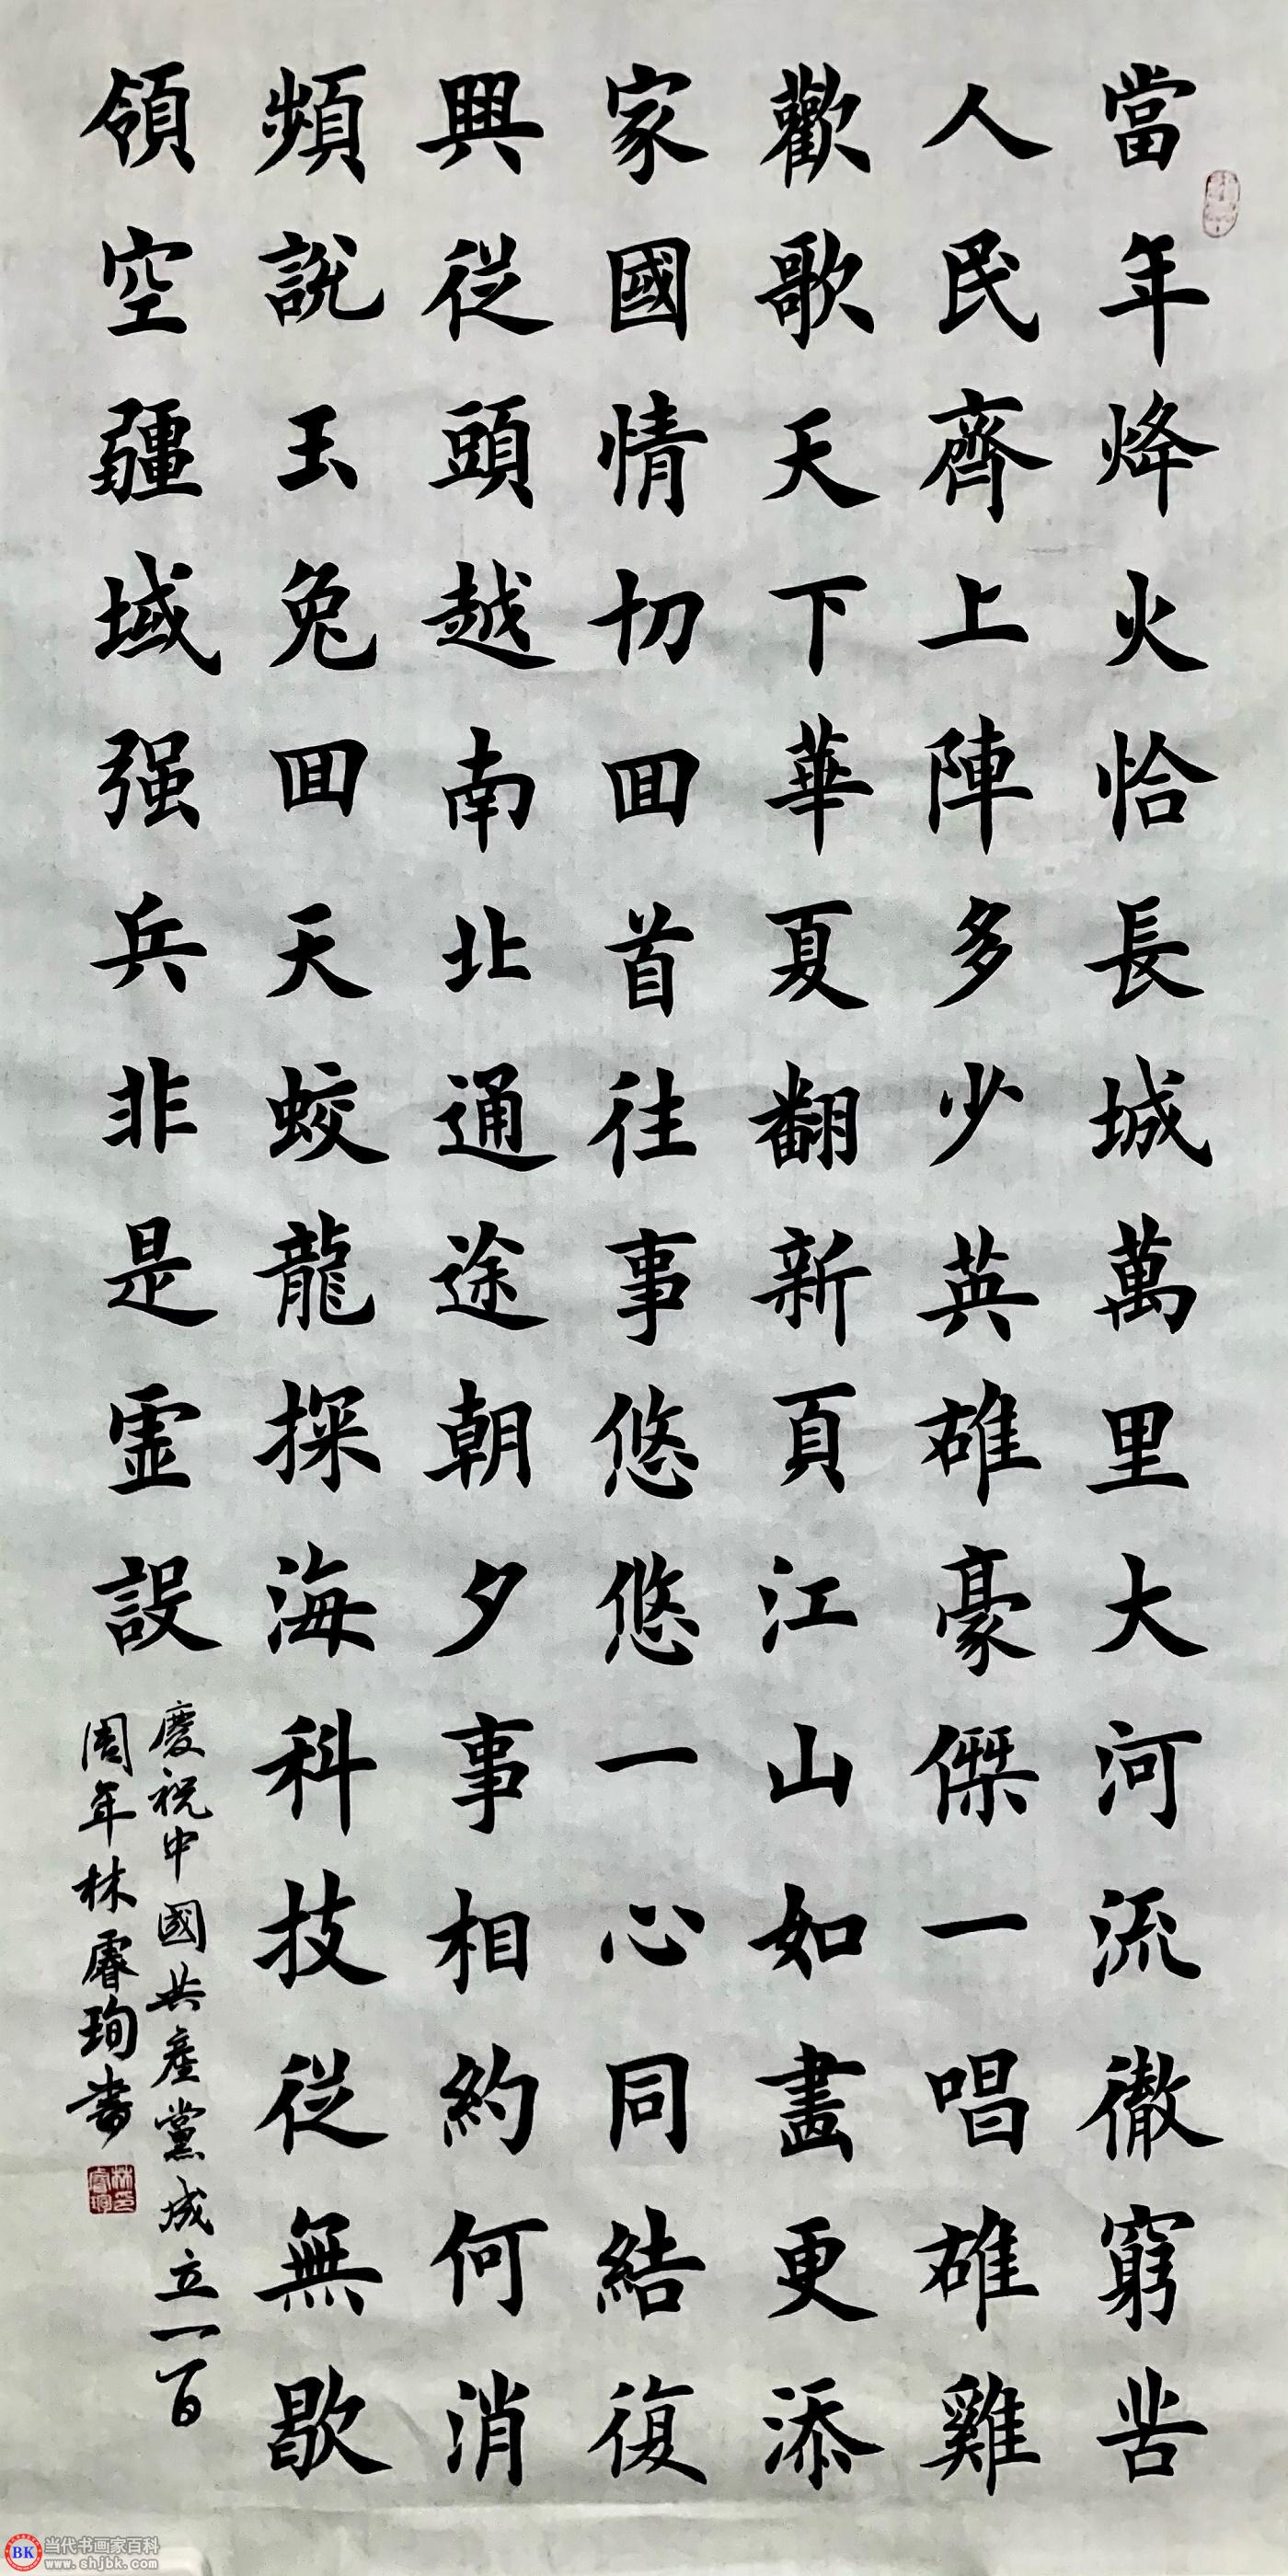 當年烽火恰長城萬里大河流徹窮苦
人民齊上陣多少英雄豪傑一唱雄雞
歡歌天下華夏翻新頁江山如畫更添
家國情切回首往事悠悠一心同結復
興從頭越南北通途朝夕事相約何消
頻說玉兔回天蛟龍探海科技從無歇
領空疆域强兵非是虛設
慶祝中國共產黨成立一百
周年林睿珣書
当代书画家百科
www.shjbk.com
BK